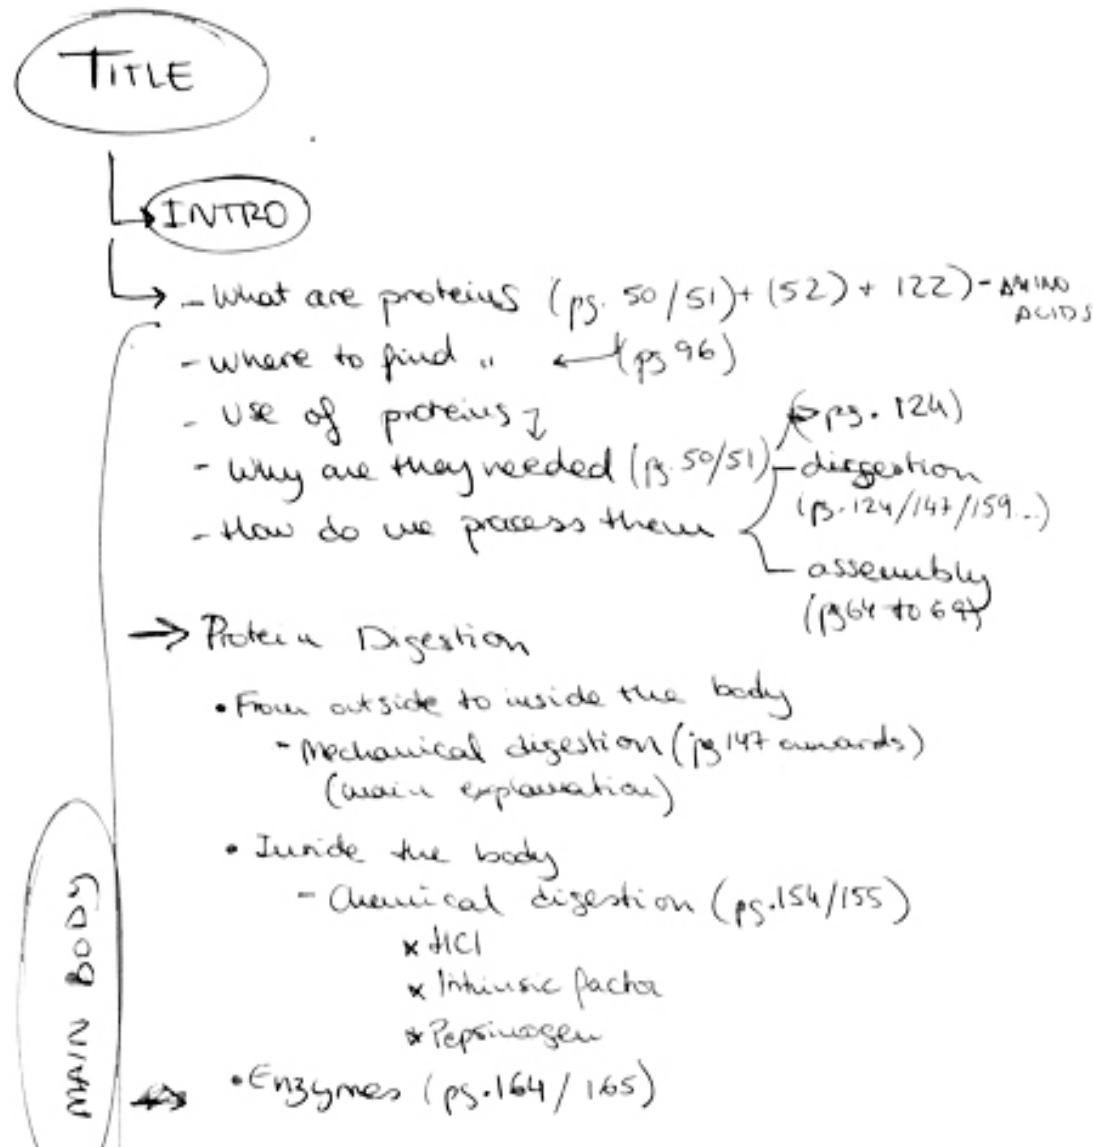 TITLE
INTRO
- What are proteins (pg. 50/51) + (52) + 122) - AMINO ACIDS
- Where to find " ← (pg 96)
- Use of proteins
- Why are they needed (pg. 50/51)
→ pg. 124)
- How do we process them
- digestion
(pg. 124/147/159...)
- assembly
(pg 64 to 69)
→ Protein Digestion
• From outside to inside the body
- Mechanical digestion (pg 147 onwards)
(main explanation)
• Inside the body
- Chemical digestion (pg. 154/155)
* HCl
* Intrinsic factor
* Pepsinogen
MAIN BODY
• Enzymes (pg. 164/165)